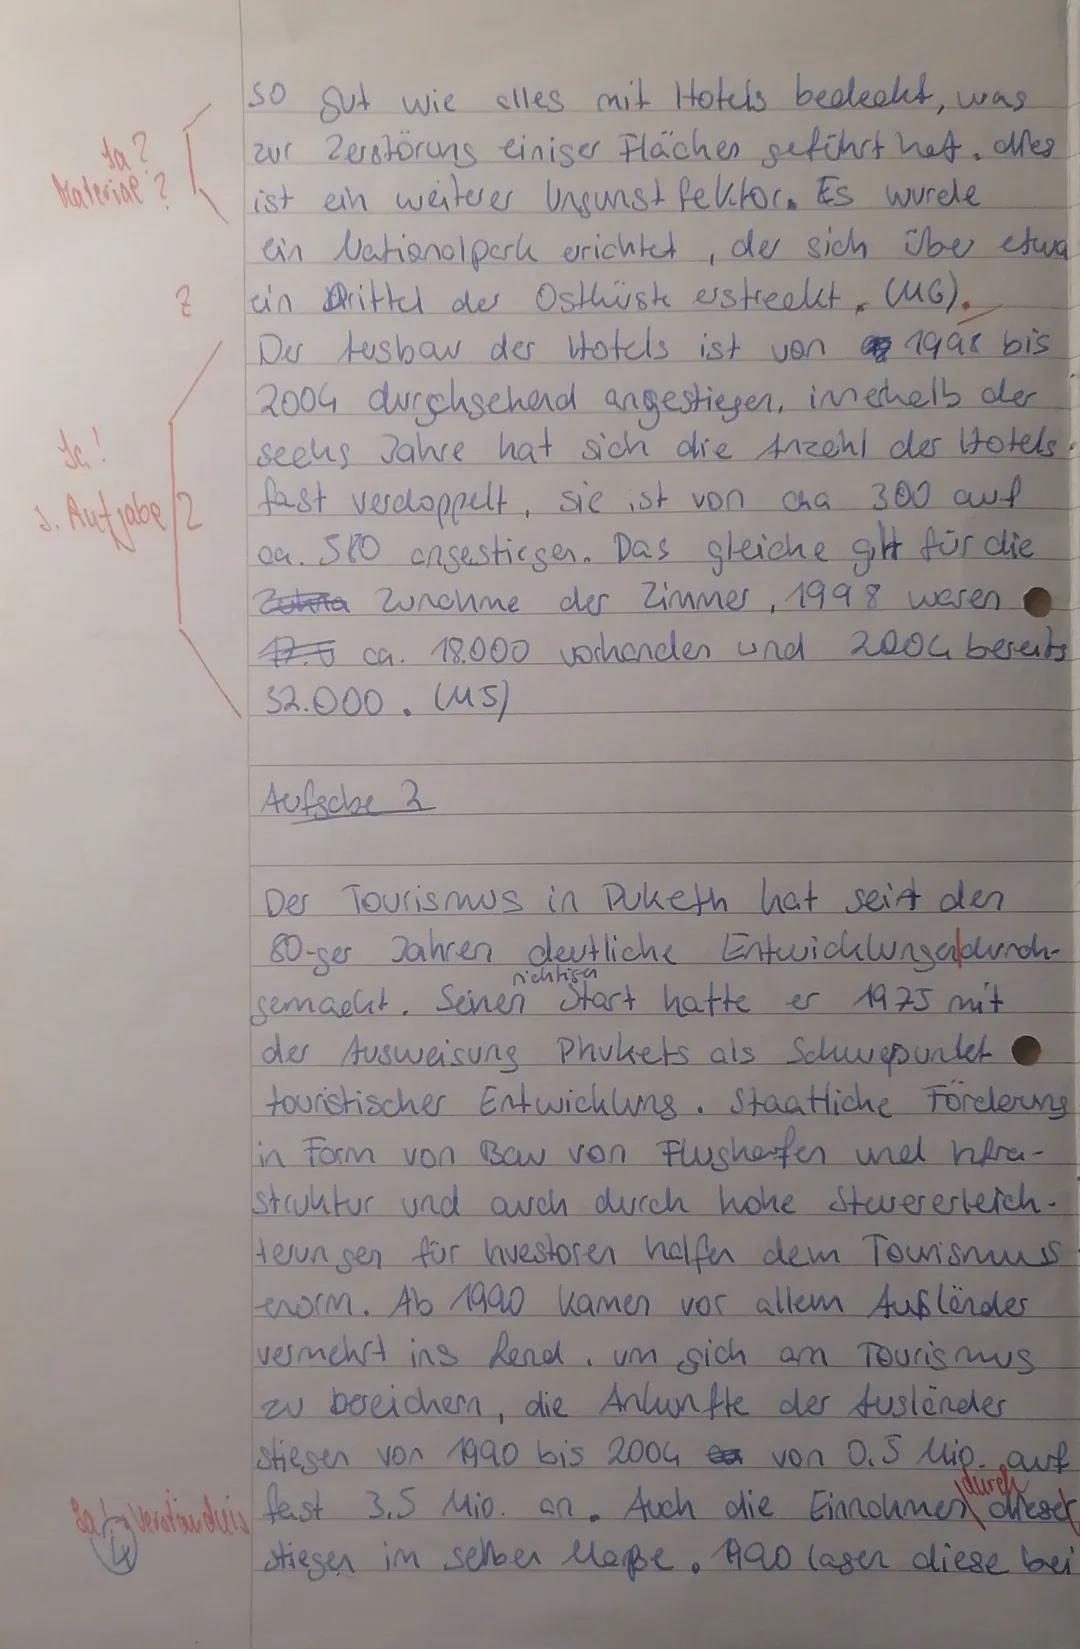 so gut wie alles mit Hotels bedeckt, was
Ja?
zur Zerstörung einiger Flächen geführt hat. Dies
Material?
ist ein weiterer Ungunstfaktor. Es wurde
ein Nationalpark errichtet, der sich über etwa
Z
ein Drittel der Ostküste erstreckt. (M6).
Der Ausbau der Hotels ist von 1998 bis
2004 durchgehend angestiegen, innerhalb der
Ja!
sechs Jahre hat sich die Anzahl der Hotels
s. Aufgabe 2
fast verdoppelt, sie ist von cha 300 auf
ca. 580 angestiegen. Das gleiche gilt für die
Zunahme der Zimmer, 1998 waren
ca. 18.000 vorhanden und 2004 bereits
32.000. (M5)
Aufgabe 2
Der Tourismus in Puketh hat seit den
80-ger Jahren deutliche Entwicklungen durch-
richtigen
gemacht. Seinen Start hatte er 1975 mit
der Ausweisung Phukets als Schwepunkt
touristischer Entwicklung. Staatliche Förderung
in Form von Bau von Flughafen und Infra-
struktur und auch durch hohe Steuererleich-
terungen für Investoren halfen dem Tourismus
enorm. Ab 1990 kamen vor allem Ausländer
vermehrt ins Land, um sich am Tourismus
zu bereichern, die Ankunfte der Ausländer
stiegen von 1990 bis 2004 von 0.5 Mio. auf
durch
Verständnis
fast 3.5 Mio. an. Auch die Einnahmen dieser
4
stiegen im selben Maße. 1990 lagen diese bei